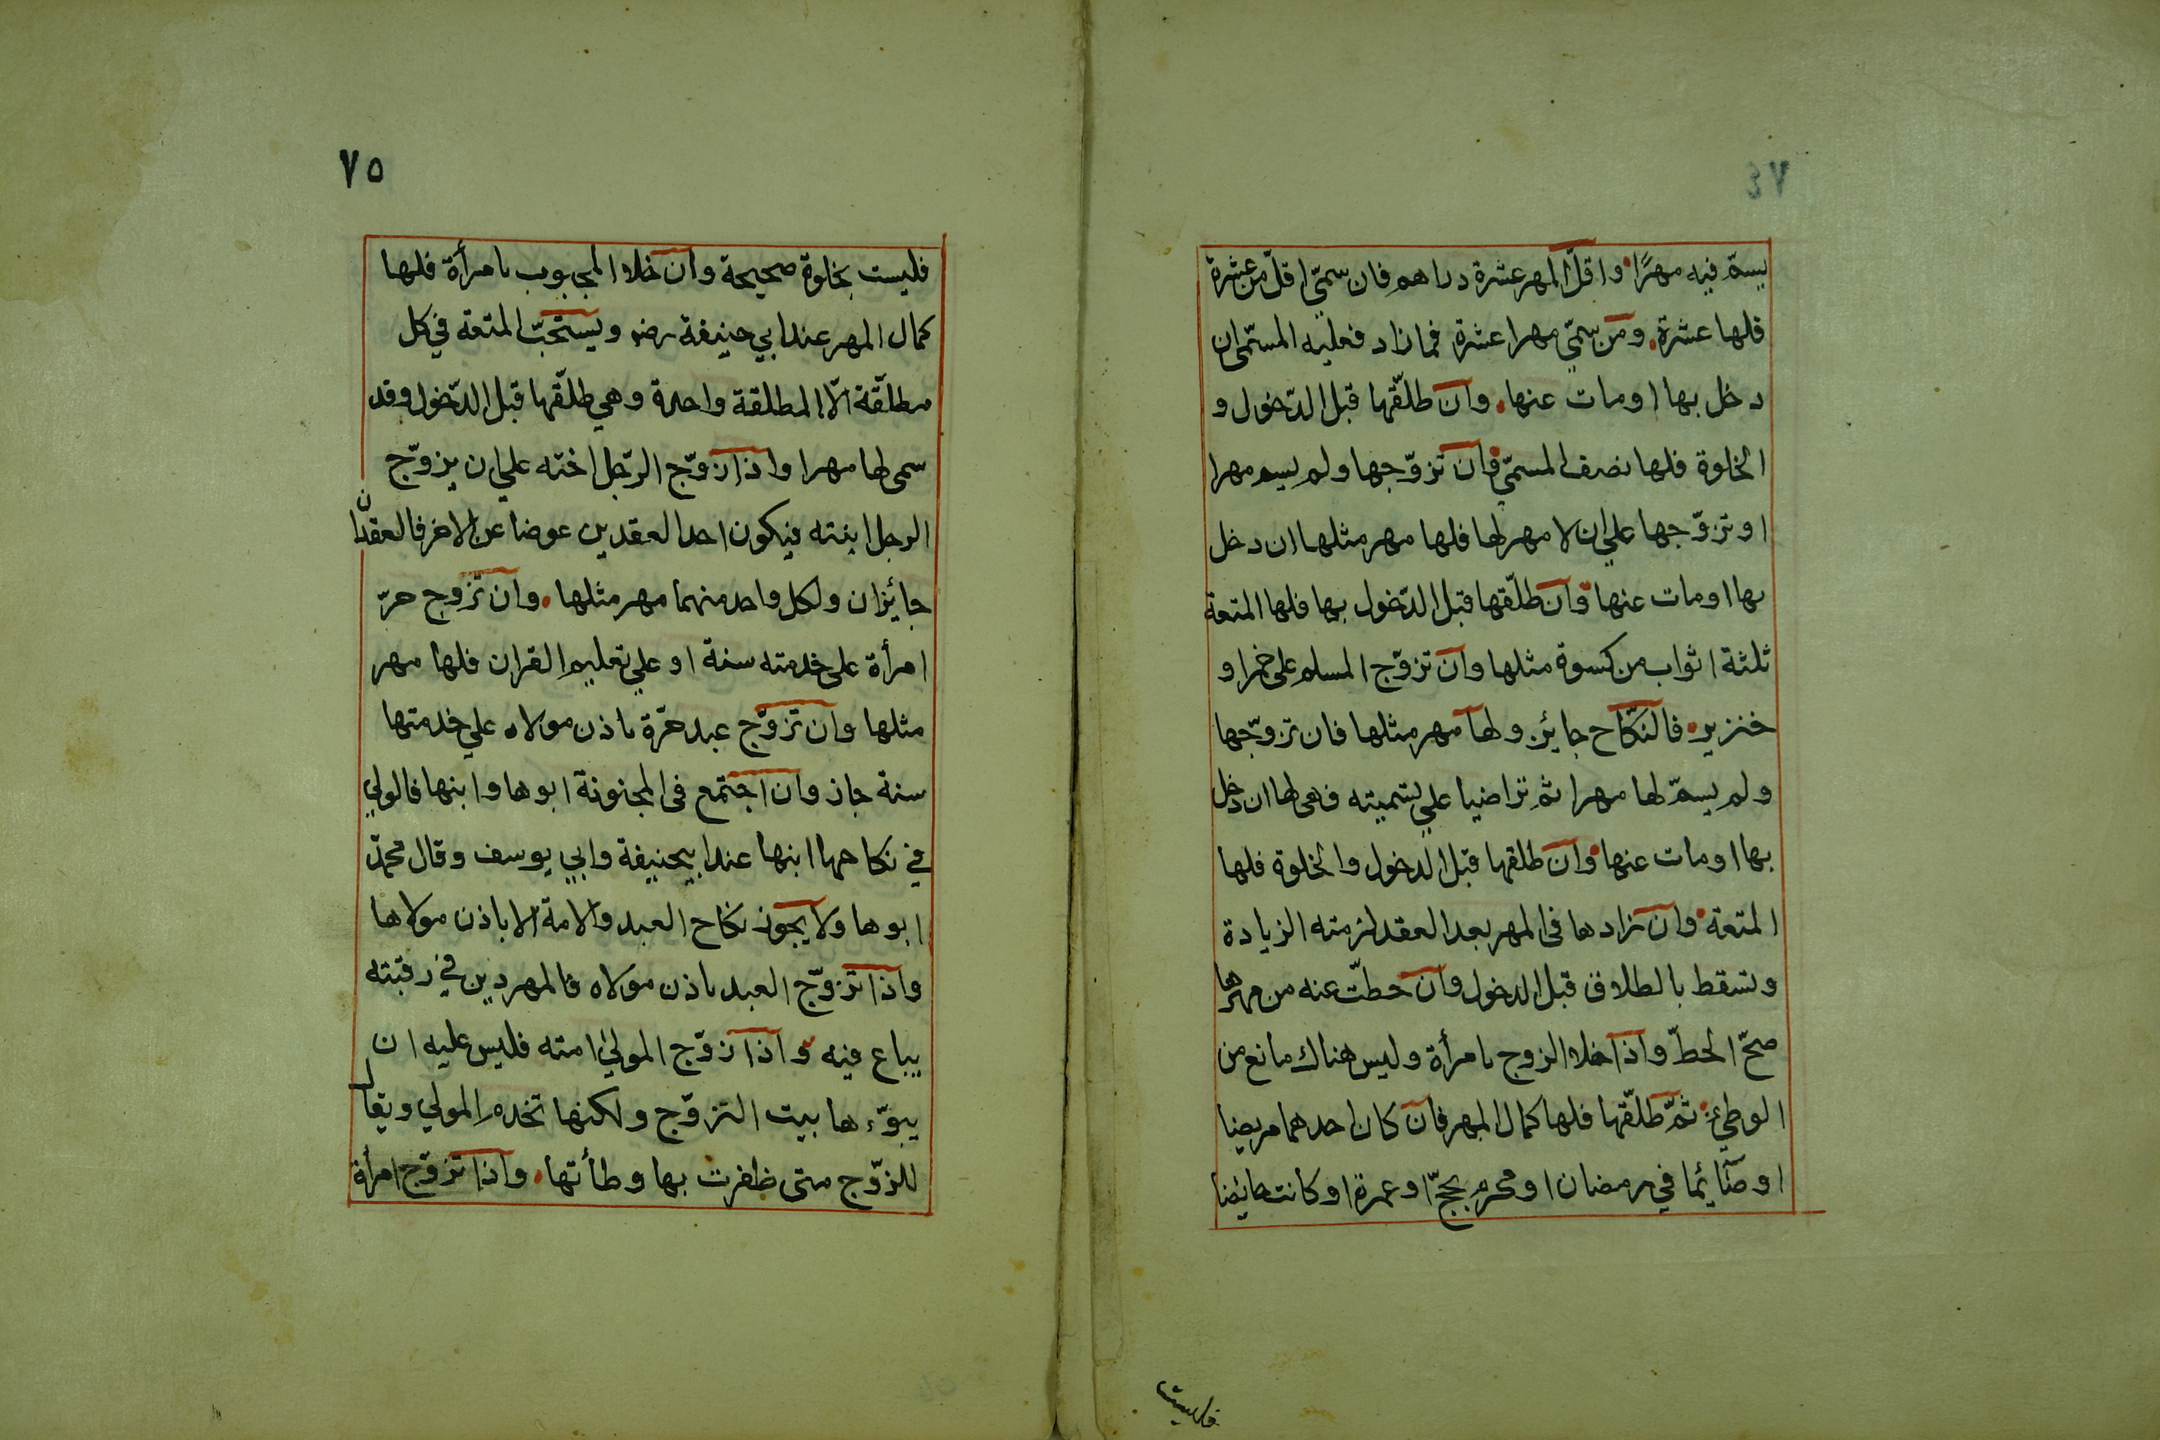 ٧٤
يسمّ فيه مهرًا واقلّ المهر عشرة دراهم فان سمّي اقلّ من عشرة
فلها عشرة ومن سمّي مهرا عشرة فمازاد فعليه المسمّي ان
دخل بها او مات عنها وان طلّقها قبل الدّخول و
الخلوة فلها نصف المسمّي فان تزوّجها ولم يسم مهرا
او تزوّجها علي ان لا مهر لها فلها مهر مثلها ان دخل
بها او مات عنها وان طلّقها قبل الدّخول بها فلها المتعة
ثلثة اثواب من كسوة مثلها وان تزوّج المسلم على خمر او
خنزير فالنكّاح جائز ولها مهر مثلها فان تزوّجها
ولم يسمّ لها مهرا ثم تراضيا علي تسميته فهى لها ان دخل
بها او مات عنها وان طلقها قبل الدخول والخلوة فلها
المتعة وان زادها فى المهر بعد العقد لزمته الزيادة
وتسقط بالطلاق قبل الدخول وان حطّت عنه من مهرها
صحّ الحطّ واذا خلا الزوج بامرأة وليس هناك مانع من
الوطئ ثمّ طلّقها فلها كمال المهر فان كان احدهما مريضا
او صآئما في رمضان او محرم بحجّ او عمرة او كانت حايضا
فليست
٧٥
فليست بخلوة صحيحة وان خلا المجبوب بامرأة فلها
كمال المهر عند ابي حنيفة رضه ويستحبّ المتعة في كل
مطلّقة الّا المطلقة واحدة وهي طلّقها قبل الدّخول وقد
سمى لها مهرا واذا زوّج الرّجل اخته علي ان يزوّج
الرجل ابنته فيكون احد العقدين عوضا عن الاخر فالعقدان
جائزان ولكل واحد منهما مهر مثلها وان تزوج حرّ
امرأة على خدمته سنة او علي تعليم القران فلها مهر
مثلها وان تزوّج عبد حرّة باذن مولاه علي خدمتها
سنة جاز وان اجتمع فى المجنونة ابوها وابنها فالولي
في نكاحها ابنها عند ابيحنيفة وابي يوسف وقال محمدّ
ابوها ولا يجوز نكاح العبد والامة الا باذن مولاها
واذا تزوّج العبد باذن مولاه فالمهر دين في رقبته
يباع فيه واذا زوّج المولي امته فليس عليه ان
يبوّءها بيت التزوّج ولكنها تخدم المولي ويقال
للزوّج متى ظفرت بها وطأتها واذا تزوّج امرأة